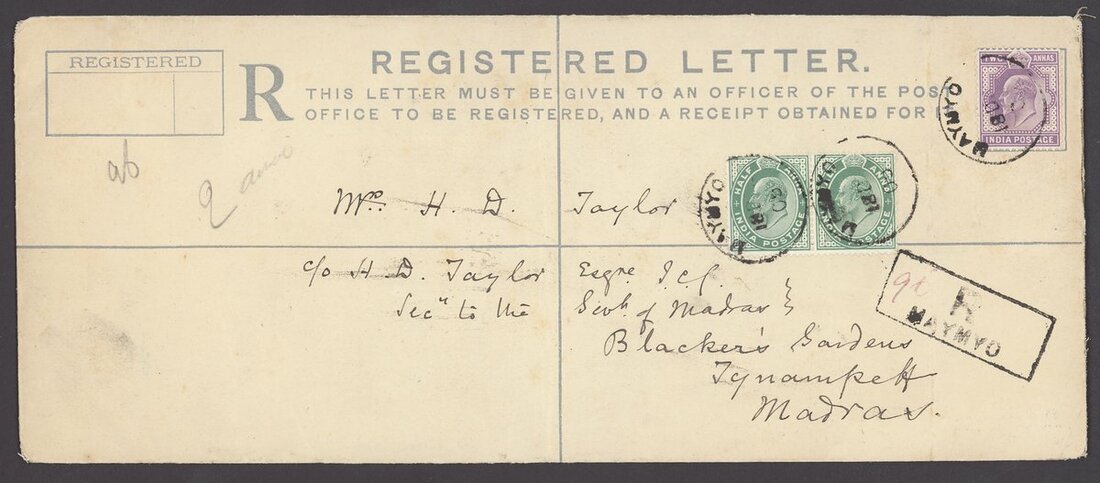 REGISTERED
R
REGISTERED LETTER.
THIS LETTER MUST BE GIVEN TO AN OFFICER OF THE POS
OFFICE TO BE REGISTERED, AND A RECEIPT OBTAINED FOR I
TWO ANNAS
INDIA POSTAGE
MAYMYO
HALF
INDIA POSTAGE
MAYMYO
ANNA
POSTAGE
Mrs. H. D. Taylor
c/o H. D. Taylor Esqre. I.C.S.
Secy to the Govt. of Madras
Blacker's Gardens
Tynampett
Madras.
R
MAYMYO